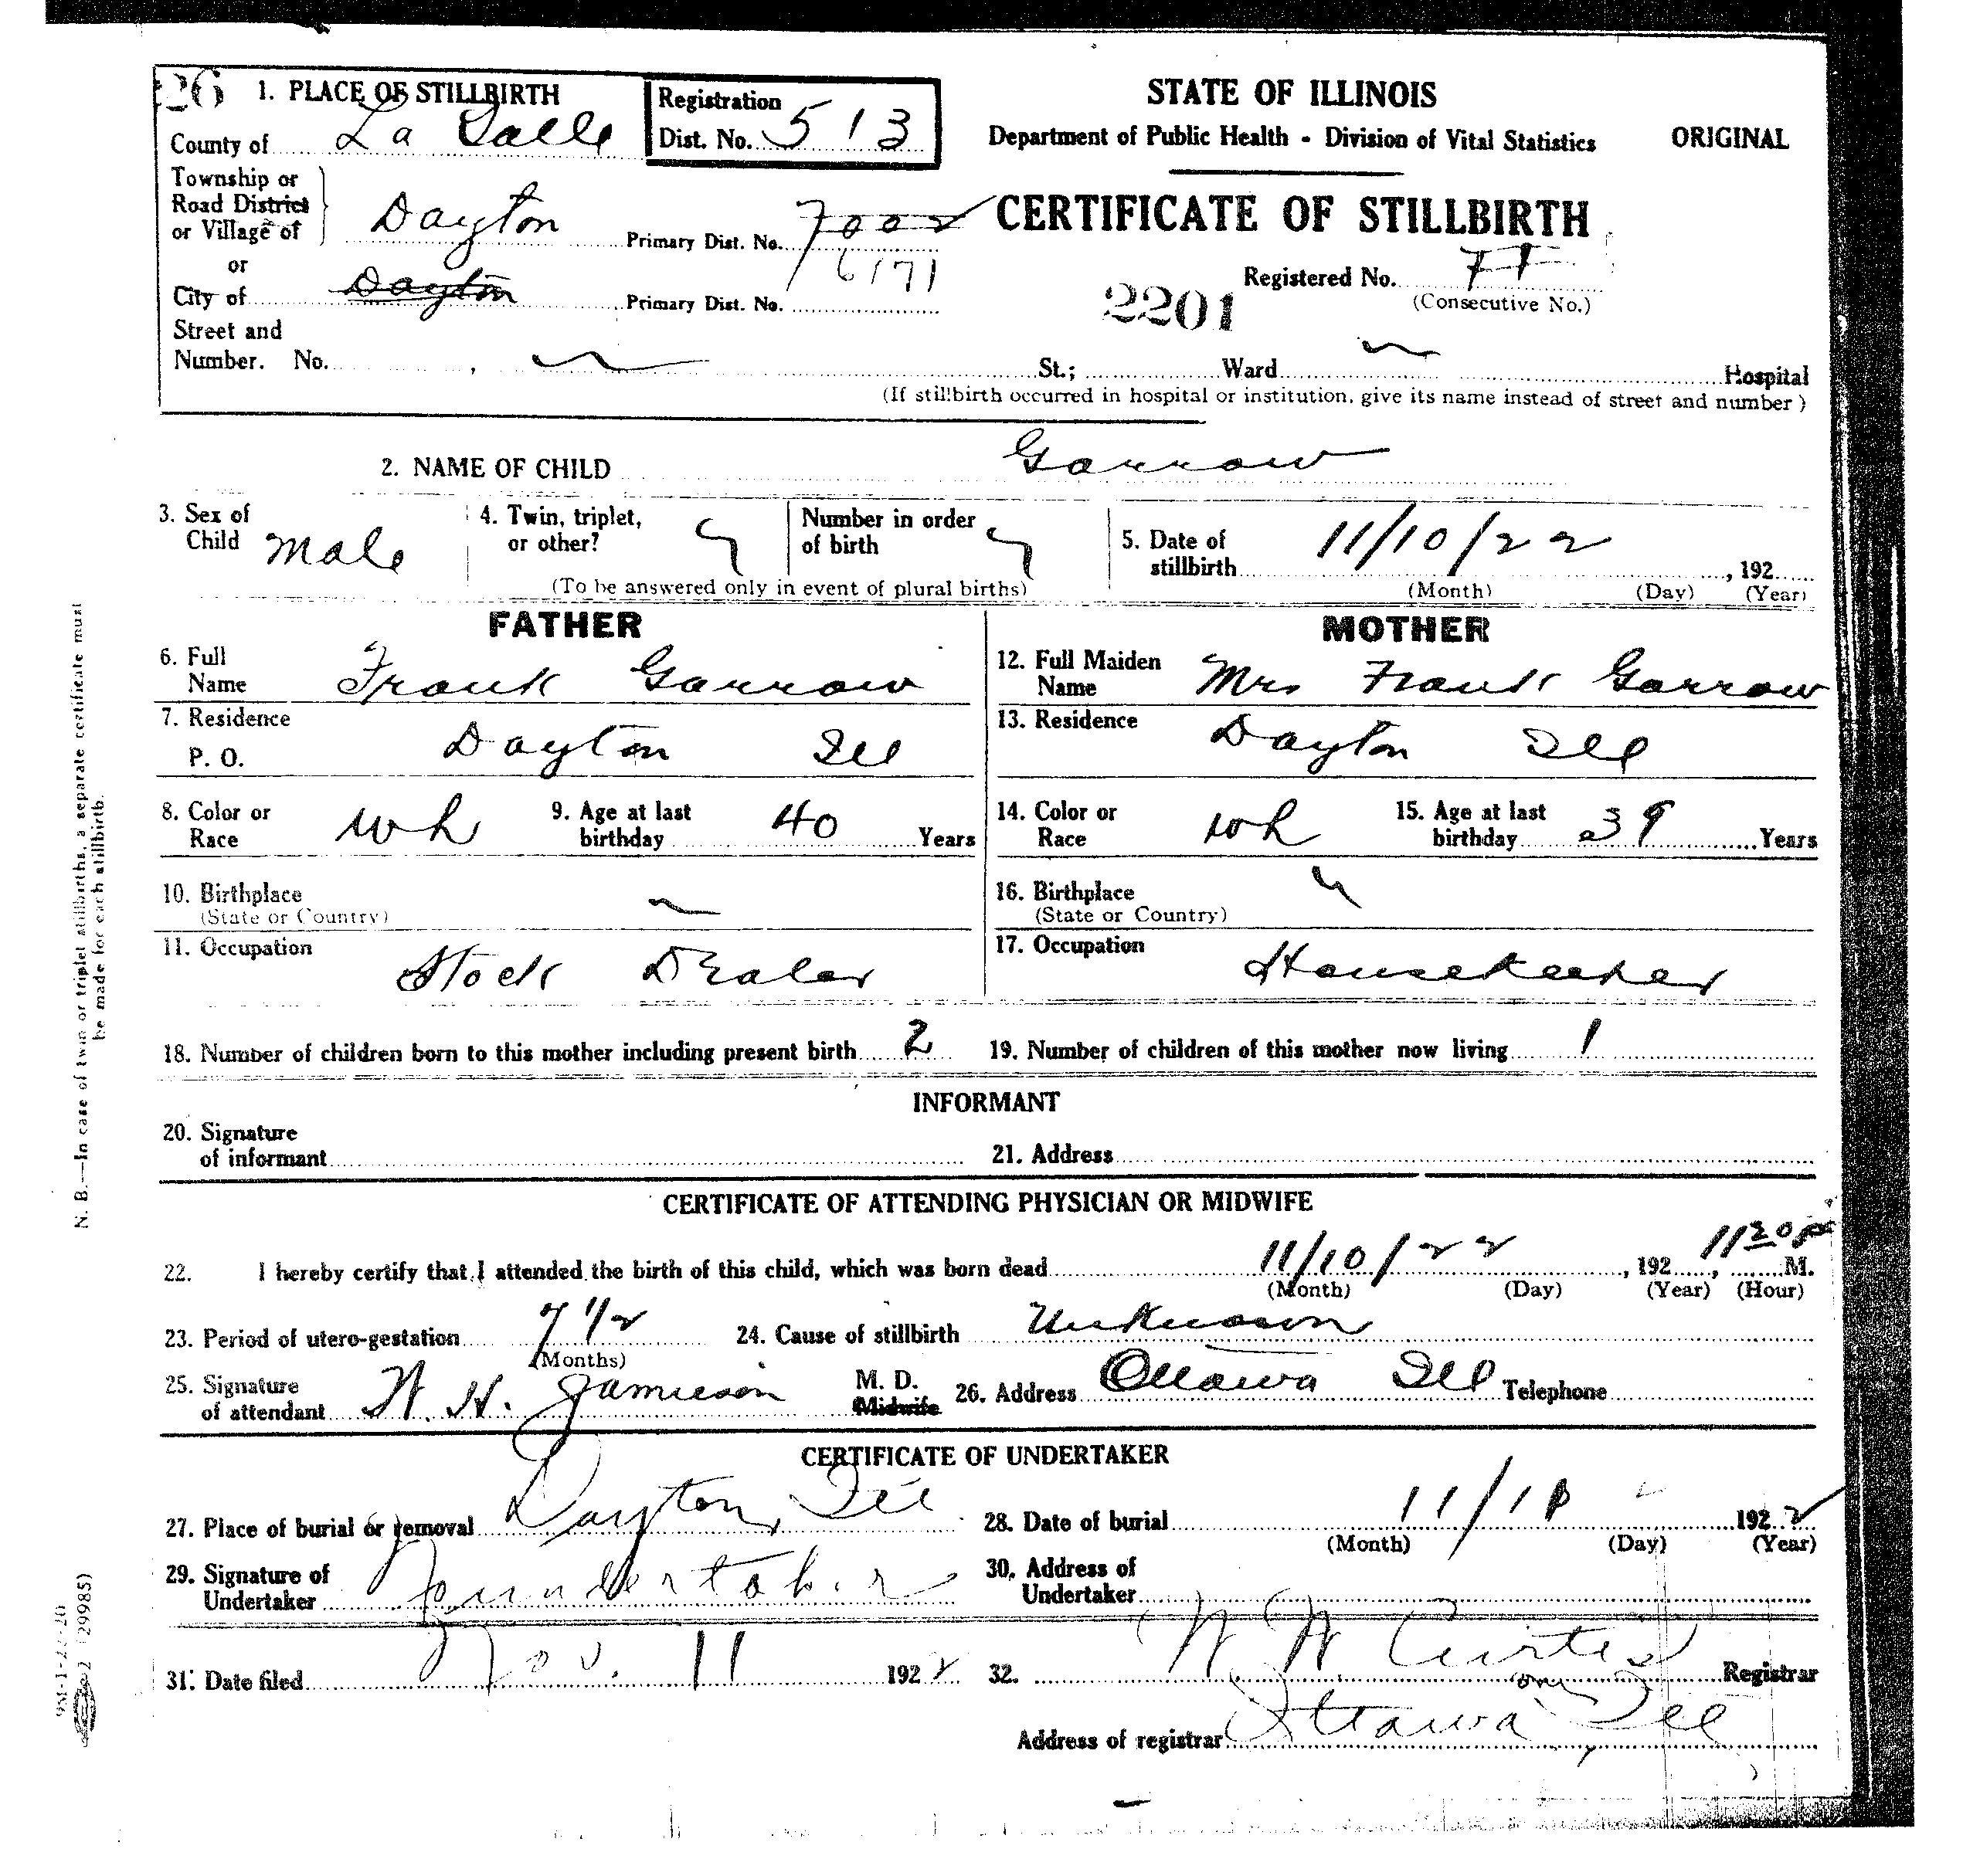 26 1. PLACE OF STILLBIRTH
County of La Salle
Registration
Dist. No. 513
STATE OF ILLINOIS
Department of Public Health - Division of Vital Statistics
ORIGINAL
Township or
Road District
or Village of Dayton Primary Dist. No. 7002
6171
or
City of Dayton Primary Dist. No.
CERTIFICATE OF STILLBIRTH
Registered No.
(Consecutive No.)
2201
Street and
Number. No. St.; Ward Hospital
(If stillbirth occurred in hospital or institution, give its name instead of street and number)
2. NAME OF CHILD Garrow
3. Sex of
Child Male
4. Twin, triplet,
or other?
Number in order
of birth
(To be answered only in event of plural births)
5. Date of
stillbirth 11/10/22 , 192
(Month) (Day) (Year)
FATHER
6. Full
Name Frank Garrow
7. Residence
P. O. Dayton Ill
8. Color or
Race wh
9. Age at last
birthday 40 Years
10. Birthplace
(State or Country)
11. Occupation Stock Dealer
MOTHER
12. Full Maiden
Name Mrs Frank Garrow
13. Residence Dayton Ill
14. Color or
Race wh
15. Age at last
birthday 39 Years
16. Birthplace
(State or Country)
17. Occupation Housekeeper
18. Number of children born to this mother including present birth 2
19. Number of children of this mother now living 1
INFORMANT
20. Signature
of informant
21. Address
CERTIFICATE OF ATTENDING PHYSICIAN OR MIDWIFE
22. I hereby certify that I attended the birth of this child, which was born dead 11/10/22 , 192 , 1130 P M.
(Month) (Day) (Year) (Hour)
23. Period of utero-gestation 7 1/2
(Months)
24. Cause of stillbirth Unknown
25. Signature
of attendant W. H. Jamieson
M. D.
Midwife
26. Address Ottawa Ill Telephone
CERTIFICATE OF UNDERTAKER
27. Place of burial or removal Dayton, Ill
28. Date of burial 11/10 1922
(Month) (Day) (Year)
29. Signature of
Undertaker No undertaker
30. Address of
Undertaker
31. Date filed Nov. 11 1922
32. W. W. Curtis Registrar
Address of registrar Ottawa, Ill
N. B.—In case of twin or triplet stillbirths, a separate certificate must
be made for each stillbirth.
(29985)